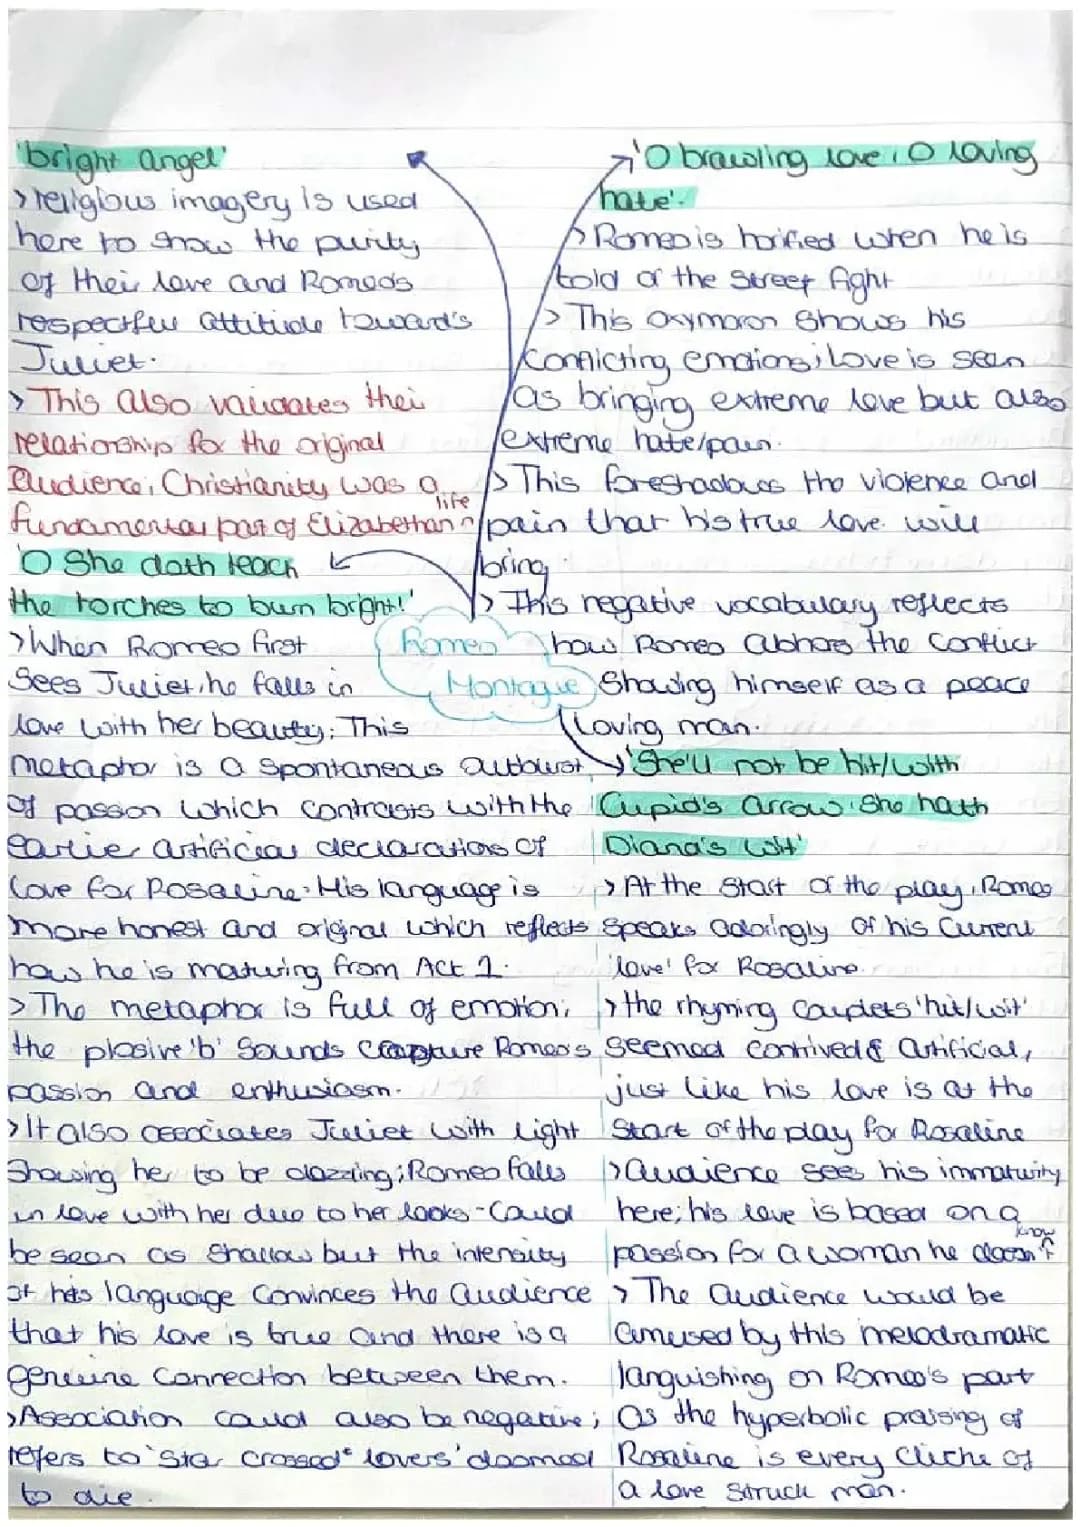 'bright angel'
> religious imagery is used
here to show the purity
of their love and Romeo's
respectful attitude toward's
Juliet.
> This also validates thei
relationship for the original
audience; Christianity was a
fundamental part of Elizabethan life
'O She doth teach
the torches to burn bright!'
> When Romeo first
sees Juliet, he falls in
love with her beauty; This
metaphor is a spontaneous outburst
of passion which contrasts with the
earlier artificial declarations of
love for Rosaline. His language is
more honest and original which reflects
how he is maturing from Act 1.
> The metaphor is full of emotion;
the plosive 'b' sounds capture Romeo's
passion and enthusiasm.
> It also associates Juliet with light
showing her to be dazzing; Romeo falls
in love with her due to her looks - Could
be seen as shallow but the intensity
of his language convinces the audience
that his love is true and there is a
genuine connection between them.
> Association could also be negative;
refers to 'star crossed lovers' doomed
to die.
Romeo
Montague
'O brawling love, O loving
hate'.
> Romeo is horified when he is
told of the street fight
> This oxymoron shows his
conflicting emotions; love is seen
as bringing extreme love but also
extreme hate/pain.
> This foreshadows the violence and
pain that his true love will
bring.
> This negative vocabulary reflects
how Romeo abhors the conflict
showing himself as a peace
loving man.
'She'll not be hit/with
Cupid's arrow. She hath
Diana's wit'
> At the start of the play, Romeo
speaks adoringly of his current
'love' for Rosaline.
> the rhyming couplets 'hit/wit'
seemed contrived & artificial,
just like his love is at the
start of the play for Rosaline
> audience sees his immaturity
here; his love is based on a
passion for a woman he doesn't know
> The audience would be
amused by this melodramatic
languishing on Romeo's part
as the hyperbolic praising of
Rosaline is every cliche of
a love struck man.